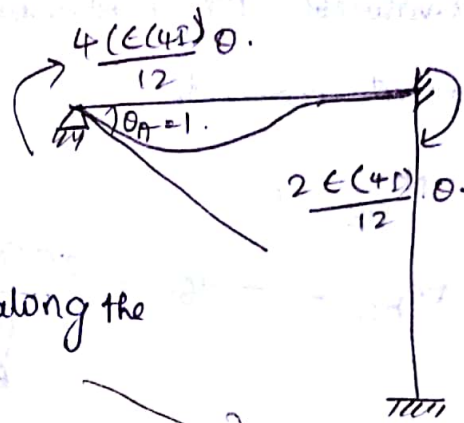 4 (E(4I) θ.
12
θA=1.
2 E(4I) θ.
12
along the